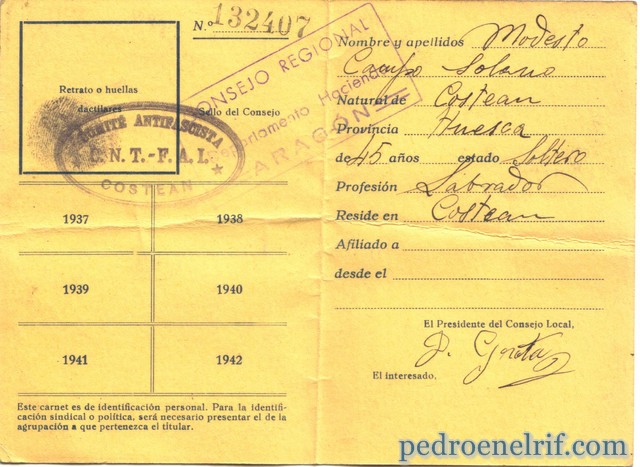 N.º 132407
Retrato o huellas
dactilares
Sello del Consejo
COMITÉ ANTIFASCISTA
C.N.T.-F.A.I.
COSTEAN
CONSEJO REGIONAL
Departamento Hacienda
ARAGÓN
1937 1938
1939 1940
1941 1942
Este carnet es de identificación personal. Para la identifi-
cación sindical o política, será necesario presentar el de la
agrupación a que pertenezca el titular.
Nombre y apellidos Modesto
Campo Solano
Natural de Costean
Provincia Huesca
de 45 años estado Soltero
Profesión Labrador
Reside en Costean
Afiliado a
desde el
El Presidente del Consejo Local,
El interesado,
pedroenelrif.com